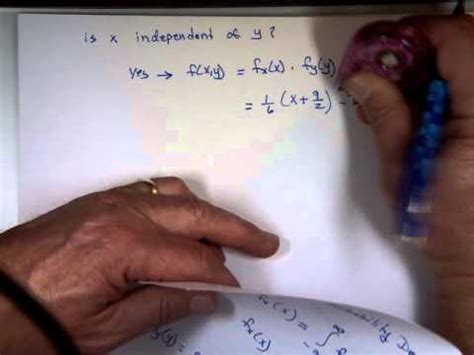 is x independent of y?
yes → f(x,y) = fx(x) · fy(y)
= 1/6 (x + 9/2)
fx(x) = ∫
fy(y) =
fx(x)